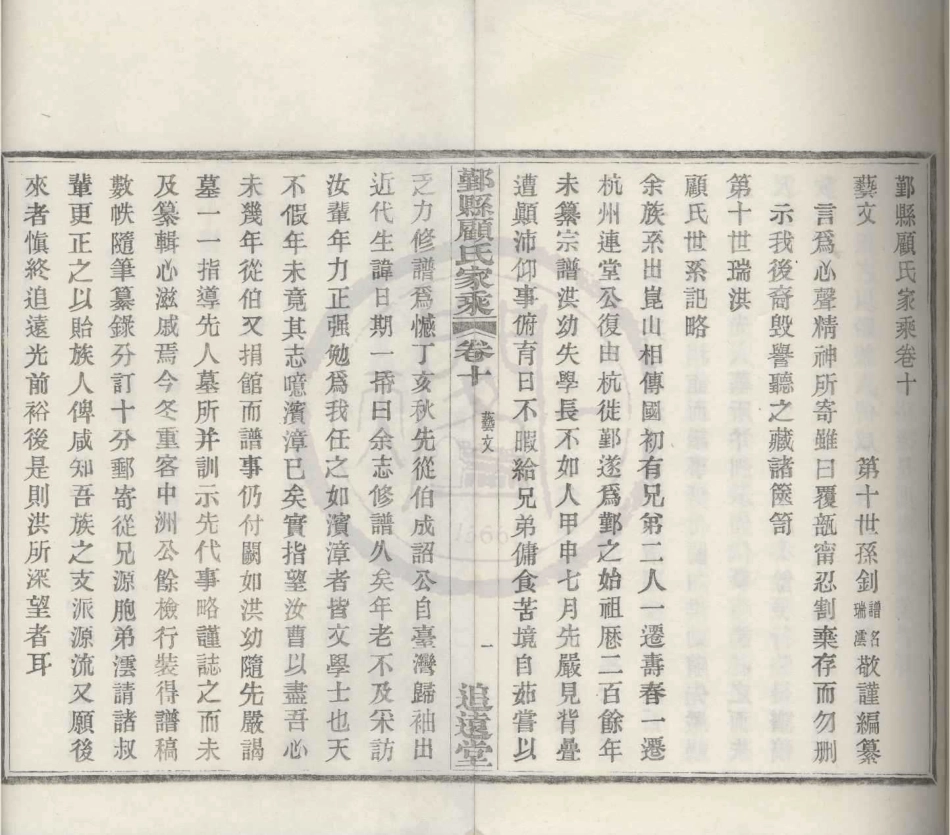 鄞縣顧氏家乘卷十
藝文　第十世孫釗譜名瑞澐敬謹編纂
言爲心聲精神所寄雖曰覆瓿甯忍割棄存而勿删
示我後裔毀譽聽之藏諸篋笥
第十世瑞洪
顧氏世系記略
余族系出崑山相傳國初有兄弟二人一遷壽春一遷
杭州連堂公復由杭徙鄞遂爲鄞之始祖厯二百餘年
未纂宗譜洪幼失學長不如人甲申七月先嚴見背疊
遭顚沛仰事俯育日不暇給兄弟傭食苦境自茹嘗以
鄞縣顧氏家乘　卷十　藝文　一　追遠堂
乏力修譜爲憾丁亥秋先從伯成詔公自臺灣歸袖出
近代生諱日期一帋曰余志修譜久矣年老不及采訪
汝輩年力正强勉爲我任之如濱漳者皆文學士也天
不假年未竟其志噫濱漳已矣實指望汝曹以盡吾心
未幾年從伯又捐館而譜事仍付闕如洪幼隨先嚴謁
墓一一指導先人墓所并訓示先代事略謹誌之而未
及纂輯心滋戚焉今冬重客中洲公餘檢行裝得譜稿
數帙隨筆纂錄分訂十分郵寄從兄源胞弟澐請諸叔
輩更正之以貽族人俾咸知吾族之支派源流又願後
來者愼終追遠光前裕後是則洪所深望者耳